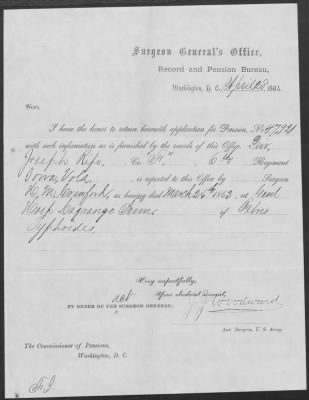 Surgeon General's Office,
Record and Pension Bureau,
Washington, D. C., April 28 186
Sir:
I have the honor to return herewith application for Pension, No 47921
with such information as is furnished by the records of this Office.
Joseph Co. "F," 6th Regiment
Iowa Vols., is reported to this Office by Surgeon
as having died March 26th 1863, at Genl
Hosp Lagrange Tenn. of Febris
Typhoides.
Very respectfully,
Your obedient servant,
J. J. Woodward
act
BY ORDER OF THE SURGEON GENERAL:
Asst. Surgeon, U. S. Army.
The Commissioner of Pensions,
Washington, D. C.